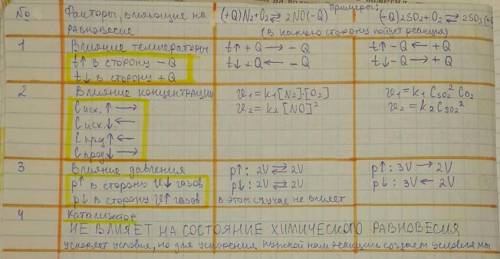 № Факторы, влияющие на равновесие
Примеры:
(+Q)N₂+O₂ ⇄ 2NO(-Q) (-Q)2SO₂+O₂ ⇄ 2SO₃
(В какую сторону пойдет реакция)
1 Влияние температуры
t↑ в сторону -Q
t↓ в сторону +Q
t↑ +Q → -Q
t↓ +Q ← -Q
t↑ -Q ← +Q
t↓ -Q → +Q
2 Влияние концентрации
Cисх. ↑ →
Cисх. ↓ ←
Cпрод ↑ ←
Cпрод ↓ →
v₁ = k₁[N₂]·[O₂]
v₂ = k₂[NO]²
v₁ = k₁ C²SO₂ CO₂
v₂ = k₂ C²SO₃
3 Влияние давления
p↑ в сторону V↓ газов
p↓ в сторону V↑ газов
p↑: 2V ⇄ 2V
p↓: 2V ⇄ 2V
в этом случае не влияет
p↑: 3V → 2V
p↓: 3V ← 2V
4 Катализатор
НЕ ВЛИЯЕТ НА СОСТОЯНИЕ ХИМИЧЕСКОГО РАВНОВЕСИЯ
ускоряет условия, но для ускорения нужной нам реакции создаем условия мы